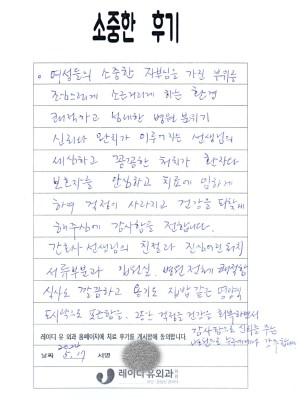 소중한 후기
여성들의 소중한 자부심을 가진 부위를
조심스럽게 소근거리게 하는 환경
쾌적하고 친절한 병원 분위기
심리와 완치가 이루어지는 선생님의
세심하고 꼼꼼한 처치가 환자와
보호자를 안심하고 치료에 임하게
하여 걱정이 사라지고 건강을 되찾게
해주심에 감사함을 전합니다.
간호사 선생님의 친절과 진심어린 터치
서류부분과 병원 전체
식사도 깔끔하고 용기도 집밥 같은 영양식
도시락으로 건강을 회복하면서
감사함으로
레이디 유 외과 홈페이지에 치료 후기를 게시함에 동의합니다.
날짜 서명
레이디유외과의원